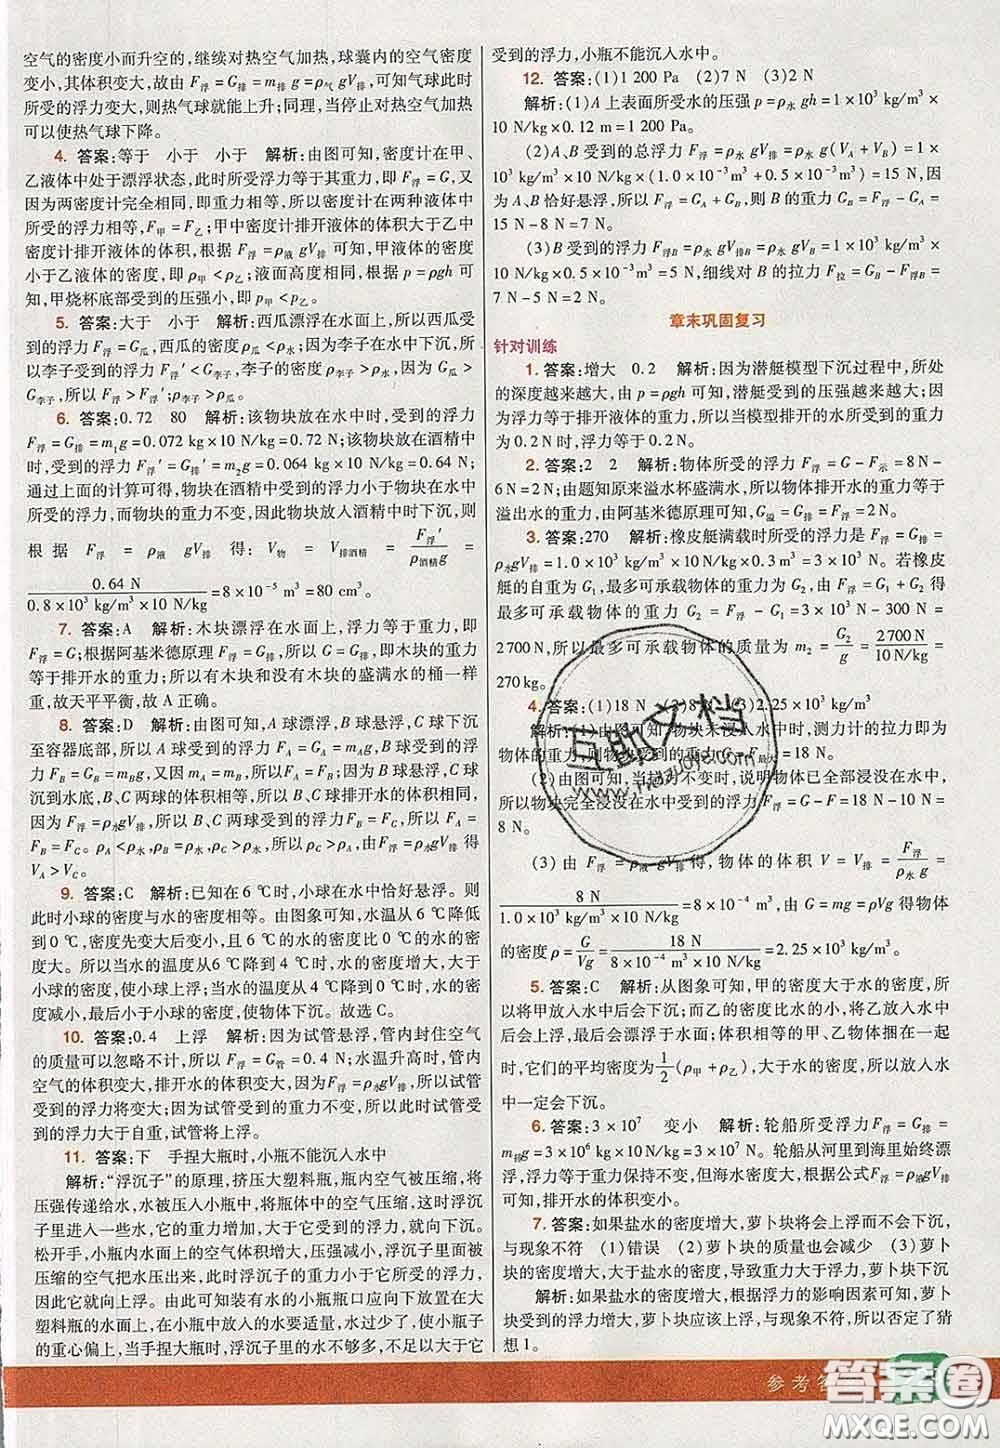 空气的密度小而升空的,继续对热空气加热,球囊内的空气密度
变小,其体积变大,故由 F浮=G排=m排 g=ρ气 gV排,可知气球此时
所受的浮力变大,则热气球就能上升;同理,当停止对热空气加热
可以使热气球下降。
4. 答案:等于 小于 小于 解析:由图可知,密度计在甲、
乙液体中处于漂浮状态,此时所受浮力等于其重力,即 F浮=G,又
因为两密度计完全相同,即重力相等,所以密度计在两种液体中
所受浮力相等,F甲=F乙;甲中密度计排开液体的体积大于乙中
密度计排开液体的体积,根据 F浮=ρ液 gV排 可知,甲液体的密度
小于乙液体的密度,即 ρ甲<ρ乙;液面高度相同,根据 p=ρgh 可
知,甲烧杯底部受到的压强小,即 p甲<p乙。
5. 答案:大于 小于 解析:西瓜漂浮在水面上,所以西瓜受
到的浮力 F浮=G瓜,西瓜的密度 ρ瓜<ρ水;因为李子在水中下沉,
所以李子受到的浮力 F浮′<G李子,李子密度 ρ李子>ρ水,因为 G瓜>
G李子,所以 F浮>F浮′;ρ李子>ρ瓜。
6. 答案:0.72 80 解析:该物块放在水中时,受到的浮力
F浮=G排=m1g=0.072 kg×10 N/kg=0.72 N;该物块放在酒精中
时,受到的浮力 F浮′=G排′=m2g=0.064 kg×10 N/kg=0.64 N;
通过上面的计算可得,物块在酒精中受到的浮力小于物块在水中
所受的浮力,而物块的重力不变,因此物块放入酒精中时下沉,则
根据 F浮=ρ液 gV排 得:V物=V排酒精=F浮′/ρ酒精g=
0.64 N/(0.8×10³ kg/m³×10 N/kg)=8×10⁻⁵ m³=80 cm³。
7. 答案:A 解析:木块漂浮在水面上,浮力等于重力,即
F浮=G;根据阿基米德原理 F浮=G排 可知,G=G排,即木块的重力
等于排开水的重力,所以有木块和没有木块的盛满水的桶一样
重,故天平平衡,故 A 正确。
8. 答案:D 解析:由图可知,A 球漂浮、B 球悬浮、C 球下沉
至容器底部,所以 A 球受到的浮力 FA=GA=mAg,B 球受到的浮
力 FB=GB=mBg,又因为 mA=mB,所以 FA=FB。B 球悬浮、C 球
沉到水底,B、C 两球的体积相等,所以 B、C 两球排开水的体积相
等,根据 F浮=ρ水gV排,所以 B、C 两球受到的浮力 FB=FC,所以 FA=
FB=FC。ρA<ρ水,ρB=ρ水,ρC>ρ水,所以 ρC>ρA,由 F浮=ρ水gV排 得
VA>VB。
9. 答案:C 解析:已知在 6 ℃时,小球在水中恰好悬浮。则
此时小球的密度与水的密度相等。由图象可知,水温从 6 ℃降低
到 0 ℃,密度先变大后变小,且 6 ℃的水的密度比 0 ℃的水的密
度大。所以当水的温度从 6 ℃降到 4 ℃时,水的密度增大,大于
小球的密度,使小球上浮;当水的温度从 4 ℃降到 0 ℃时,水的密
度减小,最后小于小球的密度,使物体下沉。故选 C。
10. 答案:0.4 上浮 解析:因为试管悬浮,管内封住空气
的质量可以忽略不计,所以,F浮=G管=0.4 N;水温升高时,管内
空气的体积变大,排开水的体积变大,因为 F浮=ρ水gV排,所以试管
受到的浮力将变大;因为试管受到的重力不变,所以此时试管受
到的浮力大于自重,试管将上浮。
11. 答案:下 手捏大瓶时,小瓶不能沉入水中
解析:“浮沉子”的原理,挤压大塑料瓶,瓶内空气被压缩,将
压强传递给水,水被压入小瓶中,将瓶体中的空气压缩,这时浮沉
子里进入一些水,它的重力增加,大于它受到的浮力,就向下沉。
松开手,小瓶内水面上的空气体积增大,压强减小,浮沉子里面被
压缩的空气把水压出来,此时浮沉子的重力小于它所受的浮力,
因此它就向上浮。由此可知装有水的小瓶瓶口应向下放置在大
塑料瓶的水面上,在小瓶中的水要适量,水过少了,使小瓶瓶子
的重心偏上,当手捏大瓶时,浮沉子的水不够多,不足以大于它
受到的浮力,小瓶不能沉入水中。
12. 答案:(1)1 200 Pa (2)7 N (3)2 N
解析:(1)A 上表面所受水的压强 p=ρ水 gh=1×10³ kg/m³×
10 N/kg×0.12 m=1 200 Pa。
(2)A、B 受到的总浮力 F浮=ρ水 gV排=ρ水 g(VA+VB)=1×
10³ kg/m³×10 N/kg×(1.0×10⁻³ m³+0.5×10⁻³ m³)=15 N,因
为 A、B 恰好悬浮,所以 F浮=GA+GB,则 B 的重力 GB=F浮-GA=
15 N-8 N=7 N。
(3)B 受到的浮力 F浮B=ρ水 gV排=ρ水 gVB=1×10³ kg/m³×
10 N/kg×0.5×10⁻³m³=5 N,细线对 B 的拉力 F拉=GB-F浮B=
7 N-5 N=2 N。
章末巩固复习
针对训练
1. 答案:增大 0.2 解析:因为潜艇模型下沉过程中,所处
的深度越来越大,由 p=ρgh 可知,潜艇受到的压强越来越大;因
为浮力等于排开液体的重力,所以当模型排开的水所受到的重力
为 0.2 N 时,浮力等于 0.2 N。
2. 答案:2 2 解析:物体所受的浮力 F浮=G-F示=8 N-
6 N=2 N;由题知原来溢水杯盛满水,所以物体排开水的重力等于
溢出水的重力,由阿基米德原理可知,G溢=G排=F浮=2 N。
3. 答案:270 解析:橡皮艇满载时所受的浮力是 F浮=G排=
ρ水gV排=1.0×10³ kg/m³×10 N/kg×0.3 m³=3×10³ N。若橡皮
艇的自重为 G1,最多可承载物体的重力为 G2,由 F浮=G1+G2 得
最多可承载物体的重力 G2=F浮-G1=3×10³ N-300 N=
2 700 N,所以最多可承载物体的质量为 m2=G2/g=2 700 N/10 N/kg=
270 kg。
4. 答案:(1)18 N (2)8 N (3)2.25×10³ kg/m³
解析:(1)由图可知,物块未浸入水中时,测力计的拉力即为
物体的重力,则物块受到的重力 G=F最大=18 N。
(2)由图可知,当拉力不变时,说明物体已全部浸没在水中,
所以物块完全浸没在水中受到的浮力 F浮=G-F=18 N-10 N=
8 N。
(3)由 F浮=ρ液 gV排 得,物体的体积 V=V排=F浮/ρ水g=
8 N/(1.0×10³ kg/m³×10 N/kg)=8×10⁻⁴ m³,由 G=mg=ρVg 得物体
的密度 ρ=G/Vg=18 N/(8×10⁻⁴ m³×10 N/kg)=2.25×10³ kg/m³。
5. 答案:C 解析:从图象可知,甲的密度大于水的密度,所
以将甲放入水中后会下沉;而乙的密度小于水的密度,将乙放入水
中后会上浮,最后会漂浮于水面;体积相等的甲、乙物体捆在一起
时,它们的平均密度为 1/2(ρ甲+ρ乙),大于水的密度,所以放入水
中一定会下沉。
6. 答案:3×10⁷ 变小 解析:轮船所受浮力 F浮=G排=
m排g=3×10⁶ kg×10 N/kg=3×10⁷ N。轮船从河里到海里始终漂
浮,浮力等于重力保持不变,但海水密度变大,根据公式F浮=ρ液gV排
可知,排开水的体积变小。
7. 答案:如果盐水的密度增大,萝卜块将会上浮而不会下沉,
与现象不符 (1)错误 (2)萝卜块的质量也会减少 (3)萝卜
块的密度增大,大于盐水的密度,导致重力大于浮力,萝卜块下沉
解析:如果盐水的密度增大,根据浮力的影响因素可知,萝卜
受到的浮力增大,萝卜块应该上浮,与现象不符,所以否定了猜
想 1。
互助文档
参考答
答案圈
MXQE.COM